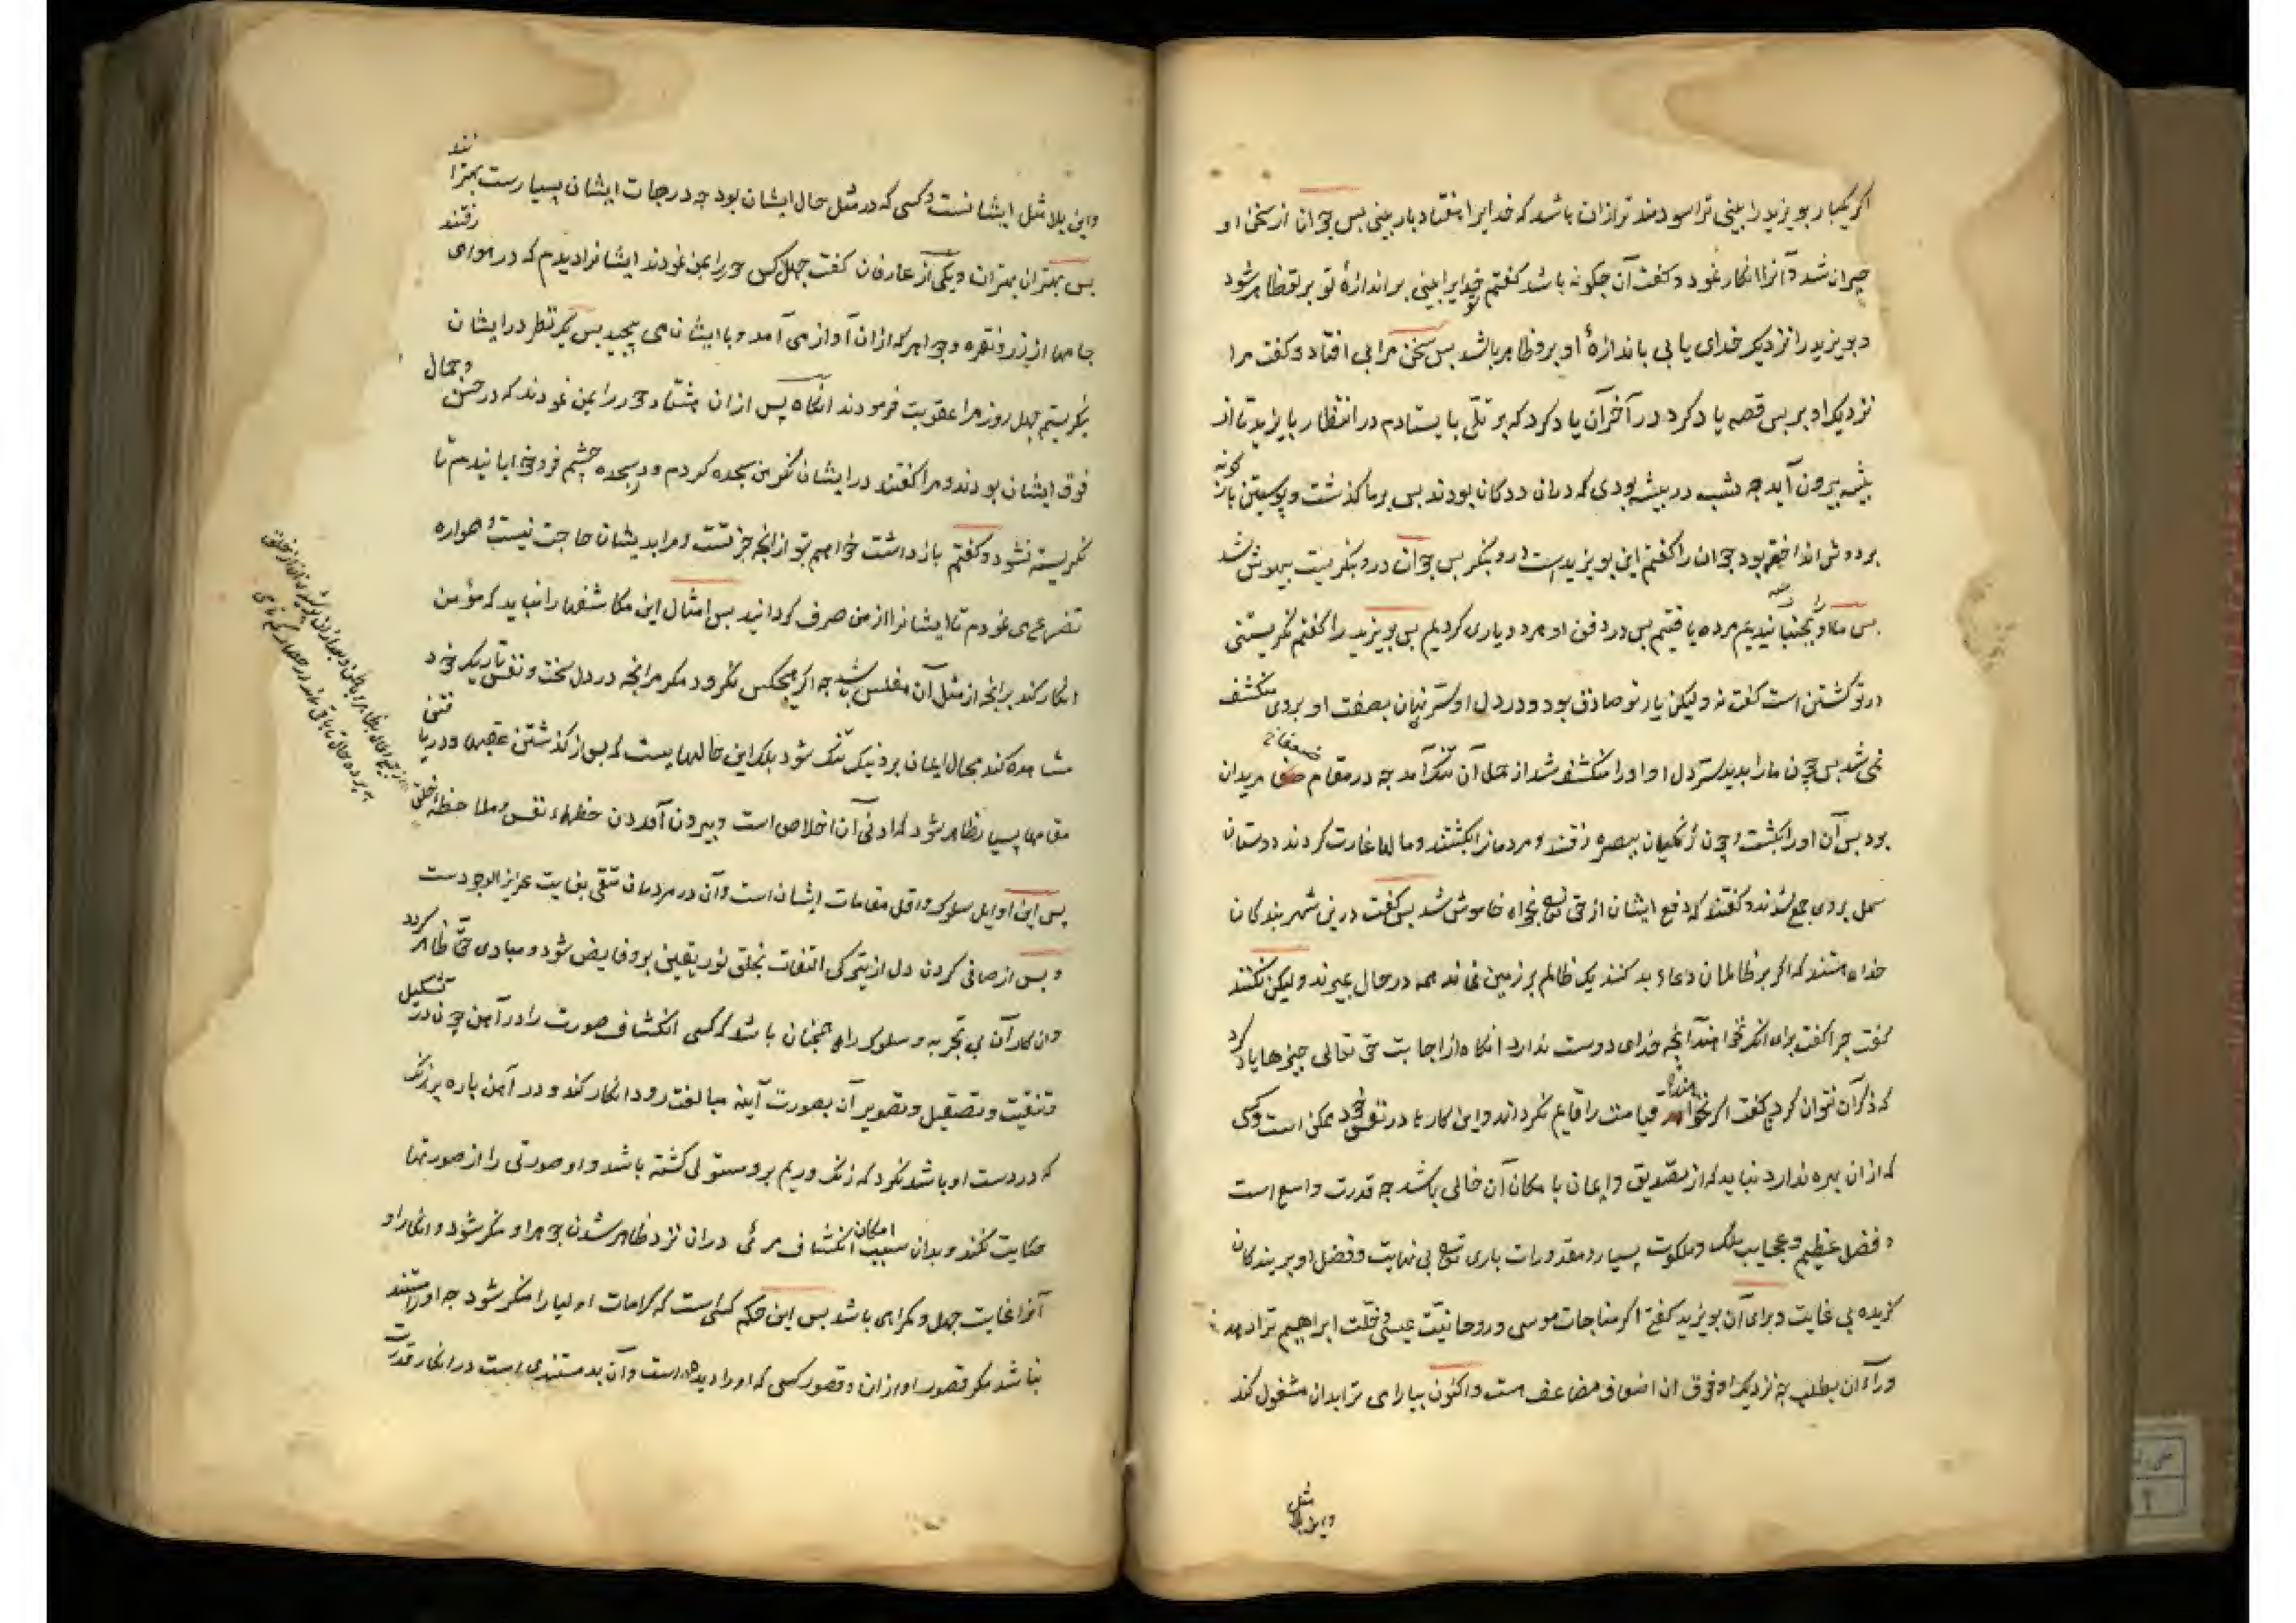 اگر یکبار بویزید را بینی ترا سودمند تر ازان باشد که خدایرا هفتاد بار بینی پس جوان از سخن او
حیران شد و آنرا انکار نمود و گفت آن چگونه باشد گفتم تو خدایرا بینی بر اندازهٔ تو بر تو ظاهر شود
و بویزید را نزدیک خدای یابی باندازهٔ او برو ظاهر باشد پس سخن مرا پی افتاد و گفت مرا
نزدیک او بر پس قصه یاد کرد و در آخر آن یاد کرد که بر تلی بایستادم در انتظار بایزید تا از
بیشه بیرون آید چه شب در بیشه بودی که دران ددکان بودند پس بر ما گذشت و پوستین باژ گونه
بر دوش انداخته بود جوان را گفتم این بویزید است درو بنگر پس جوان درو بنگریست بیهوش شد
پس ما او را بجنبانیدیم مرده یافتیم پس در دفن او مر دو یاری کردیم پس بویزید را گفتم نگریستنی
در تو کشتن است گفت نه ولیکن یار تو صادق بود و در دل او سرّ پنهان بصفت او بروی منکشف
نمی‌شد پس چون ما را بدید سرّ دل او او را منکشف شد از حمل آن تنگ آمد چه در مقام ضعفاء مریدان
بود پس آن او را بکشت و چون زنگیان ببصره رفتند و مردمانرا بکشتند و مالها غارت کردند دوستان
سهل بروی جمع شدند و گفتند که دفع ایشان از حق تعالی بخواه خاموش شد پس گفت درین شهر بندگان
خداء هستند که اگر بر ظالمان دعاء بد کنند یک ظالم بر زمین نماند همه در حال بمیرند ولیکن نکنند
گفت چرا گفت برای انکه نخواهند آنچه خدای دوست ندارد انگاه از اجابت حق تعالی چیزها یاد کرد
که ذکر آن نتوان کرد تا گفت اگر بخواهند قیامت را قایم نگرداند و این کارها در نفس خود ممکن است و کسی
که ازان بهره ندارد نباید که از تصدیق و ایمان با مکان آن خالی باشد چه قدرت واسع است
و فضل عظیم و عجایب ملک و ملکوت بسیار و مقدورات باری تعالی بی نهایت و فضل او بر بندگان
گزیده بی غایت و برای آن بویزید گفتی اگر مناجات موسی و روحانیت عیسی و خلت ابراهیم ترا دهد
وراء آن بطلب چه نزدیک او فوق ان اضعاف مضاعف هست و اکنون بیارامی ترا بدان مشغول کند
واین بلا مثل
واین بلا مثل ایشانست و کسی که در مثل حال ایشان بود چه درجات ایشان بسیارست بهترانند
پس بهتران بهتران و یکی از عارفان گفت چهل کس حور را بمن نمودند ایشانرا دیدم که در هوا می رفتند
جامها از زر و نقره و جواهر که ازان آواز می آمد و با ایشان می پیچید پس یک نظر در ایشان
نگریستم چهل روز مرا عقوبت فرمودند آنگاه پس ازان هشتاد حور را بمن نمودند که در حسن و جمال
فوق ایشان بودند و مرا گفتند در ایشان نگر من سجده کردم و در سجده چشم فرو خوابانیدم تا
نگریسته نشود و گفتم باز داشت خواهم بتو ازانچه جز تست و مرا بدیشان حاجت نیست و همواره
تضرع می نمودم تا ایشانرا از من صرف گردانید پس امثال این مکاشفها را نباید که مؤمن
انکار کند برانچه از مثل آن مفلس باشد چه اگر هیچکس نگرود مگر مرانچه در دل سخت و نفس تاریک خود
مشاهده کند مجال ایمان برو نیک تنگ شود بلک این حالهاییست که پس از گذشتن عقبها و دریافتنی
مقامها بسیار ظاهر شود که ادنی آن اخلاص است و بیرون آوردن حظهاء نفس و ملاحظهٔ خلق
پس این اوایل سلوک و اقل مقامات ایشان است و آن در مردمان متقی بغایت عزیز الوجودست
و پس از صافی کردن دل از تیرگی التفات بخلق نور یقین برو فایض شود و مبادی حق ظاهر گردد
وانکار آن بی تجربه و سلوک راه همچنان باشد که کسی انکشاف صورت را در آهن چون در تشکیل
و تنقیت و تصقیل و تصویر آن بصورت آینه مبالغت رود انکار کند و در آهن پاره پر زنگ
که در دست او باشد نگرد که زنگ و ریم برو مستولی گشته باشد و او صورتی را از صورتها
حکایت نکند و بدان سبب امکان انکشاف مرئی دران نزد ظاهر شدن جوهر او منکر شود و انکار او
آنرا غایت جهل و گمراهی باشد پس این حکم کسی است که کرامات اولیا را منکر شود چه او را مستند
نباشد مگر قصور او ازان و قصور کسی که او را دیده است و آن بد مستندی است در انکار قدرت